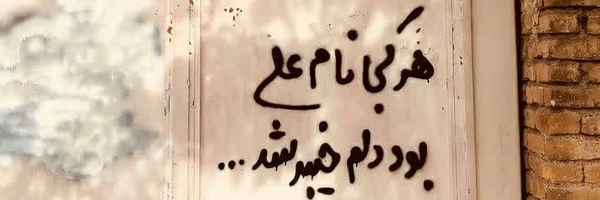 هر کجا نام علی
بود دلم خیبر شد ...